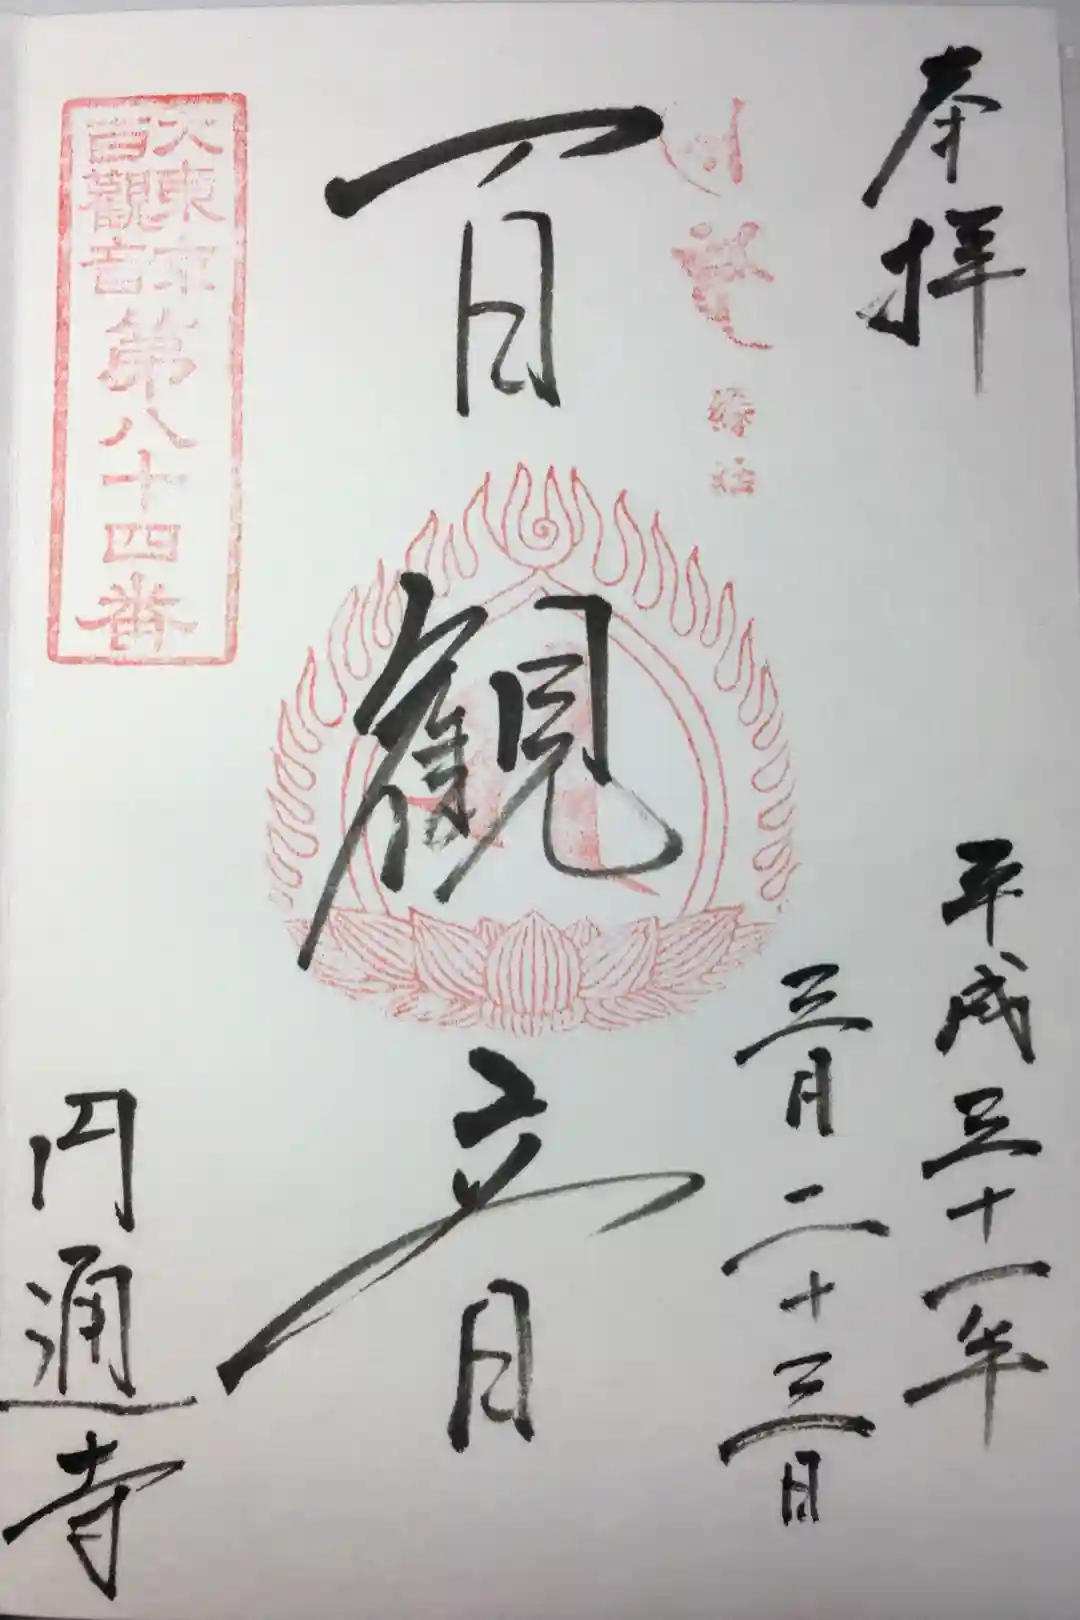 奉拝
平成三十一年
三月二十三日
百観音
大東京
百觀音
第八十四番
円通寺